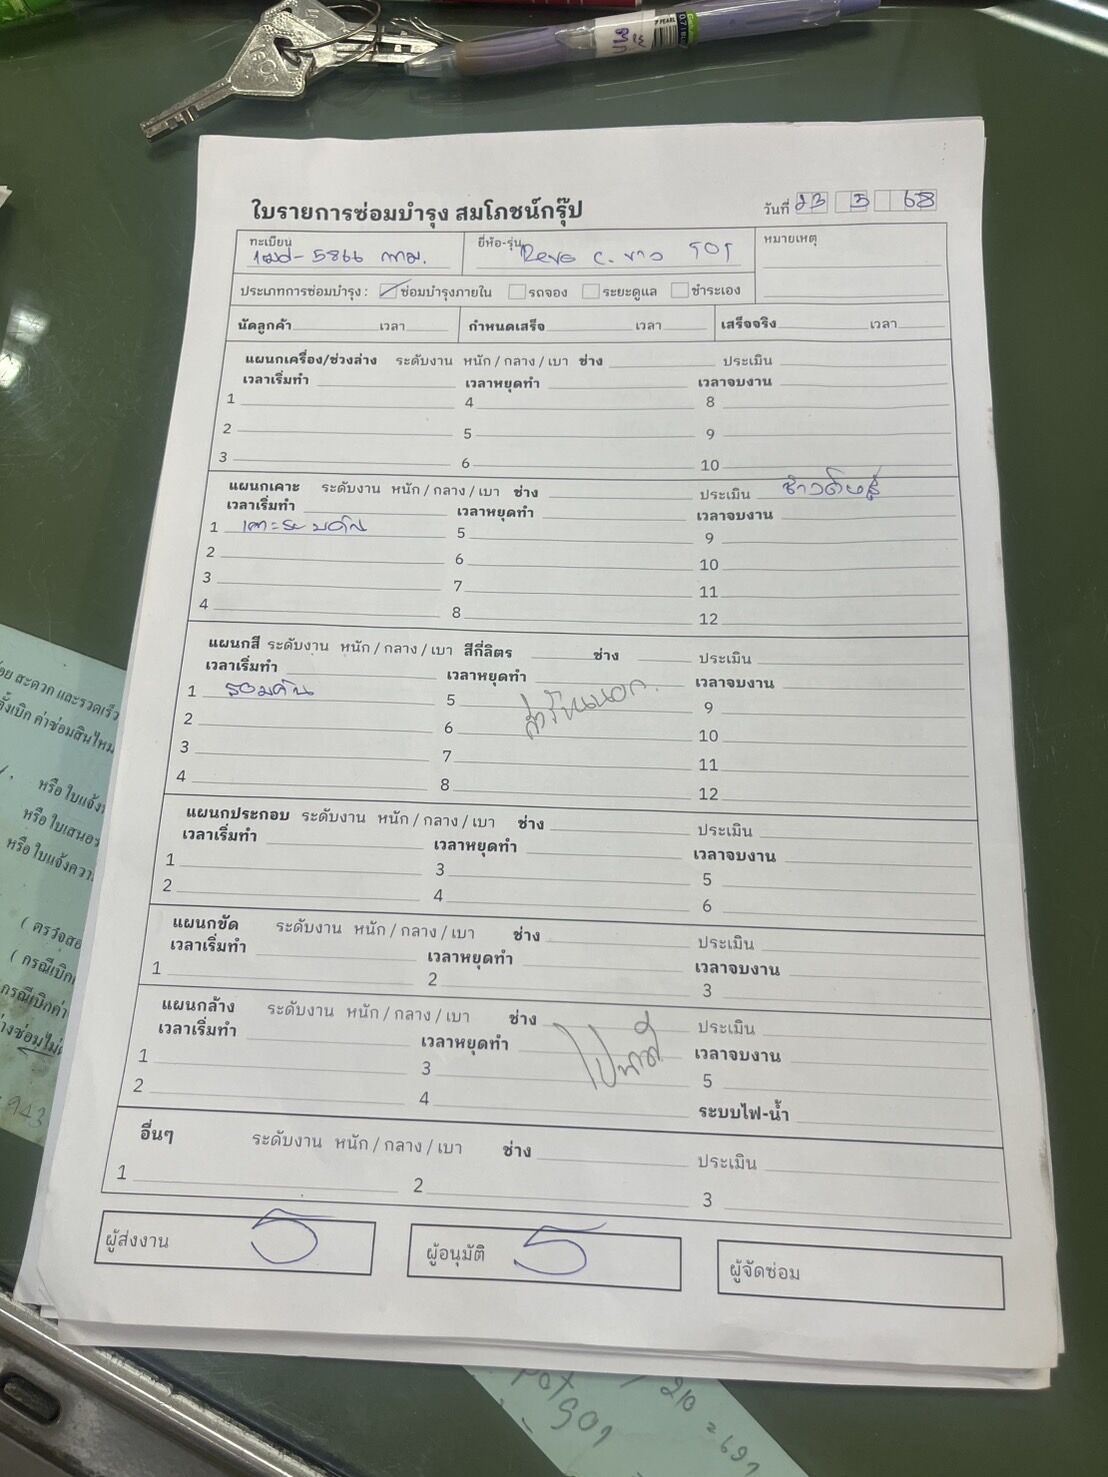 ใบรายการซ่อมบำรุง สมโภชน์กรุ๊ป
วันที่ 23 5 68
ทะเบียน 1ฒฮ-5866 กทม.
ยี่ห้อ-รุ่น Revo c. ขาว
หมายเหตุ
ประเภทการซ่อมบำรุง : ซ่อมบำรุงภายใน รถจอง ระยะดูแล ชำระเอง
นัดลูกค้า เวลา กำหนดเสร็จ เวลา เสร็จจริง เวลา
แผนกเครื่อง/ช่วงล่าง ระดับงาน หนัก / กลาง / เบา ช่าง ประเมิน
เวลาเริ่มทำ เวลาหยุดทำ เวลาจบงาน
1 4 8
2 5 9
3 6 10
แผนกเคาะ ระดับงาน หนัก / กลาง / เบา ช่าง ประเมิน
เวลาเริ่มทำ เวลาหยุดทำ เวลาจบงาน
1 เคาะรอบคัน 5 9
2 6 10
3 7 11
4 8 12
แผนกสี ระดับงาน หนัก / กลาง / เบา สีกี่ลิตร ช่าง ประเมิน
เวลาเริ่มทำ เวลาหยุดทำ เวลาจบงาน
1 รอบคัน 5 9
2 6 10
3 7 11
4 8 12
แผนกประกอบ ระดับงาน หนัก / กลาง / เบา ช่าง ประเมิน
เวลาเริ่มทำ เวลาหยุดทำ เวลาจบงาน
1 3 5
2 4 6
แผนกขัด ระดับงาน หนัก / กลาง / เบา ช่าง ประเมิน
เวลาเริ่มทำ เวลาหยุดทำ เวลาจบงาน
1 2 3
แผนกล้าง ระดับงาน หนัก / กลาง / เบา ช่าง ประเมิน
เวลาเริ่มทำ เวลาหยุดทำ เวลาจบงาน
1 3 5
2 4 ระบบไฟ-น้ำ
อื่นๆ ระดับงาน หนัก / กลาง / เบา ช่าง ประเมิน
1 2 3
ผู้ส่งงาน
ผู้อนุมัติ
ผู้จัดซ่อม
สะดวก และรวดเร็ว
ค่าซ่อมสินไหม
หรือ ใบแจ้ง
หรือ ใบเสนอ
หรือ ใบแจ้งความ
( ตรวจสอ
( กรณีเบิก
กรณีเบิกค่า
943
210